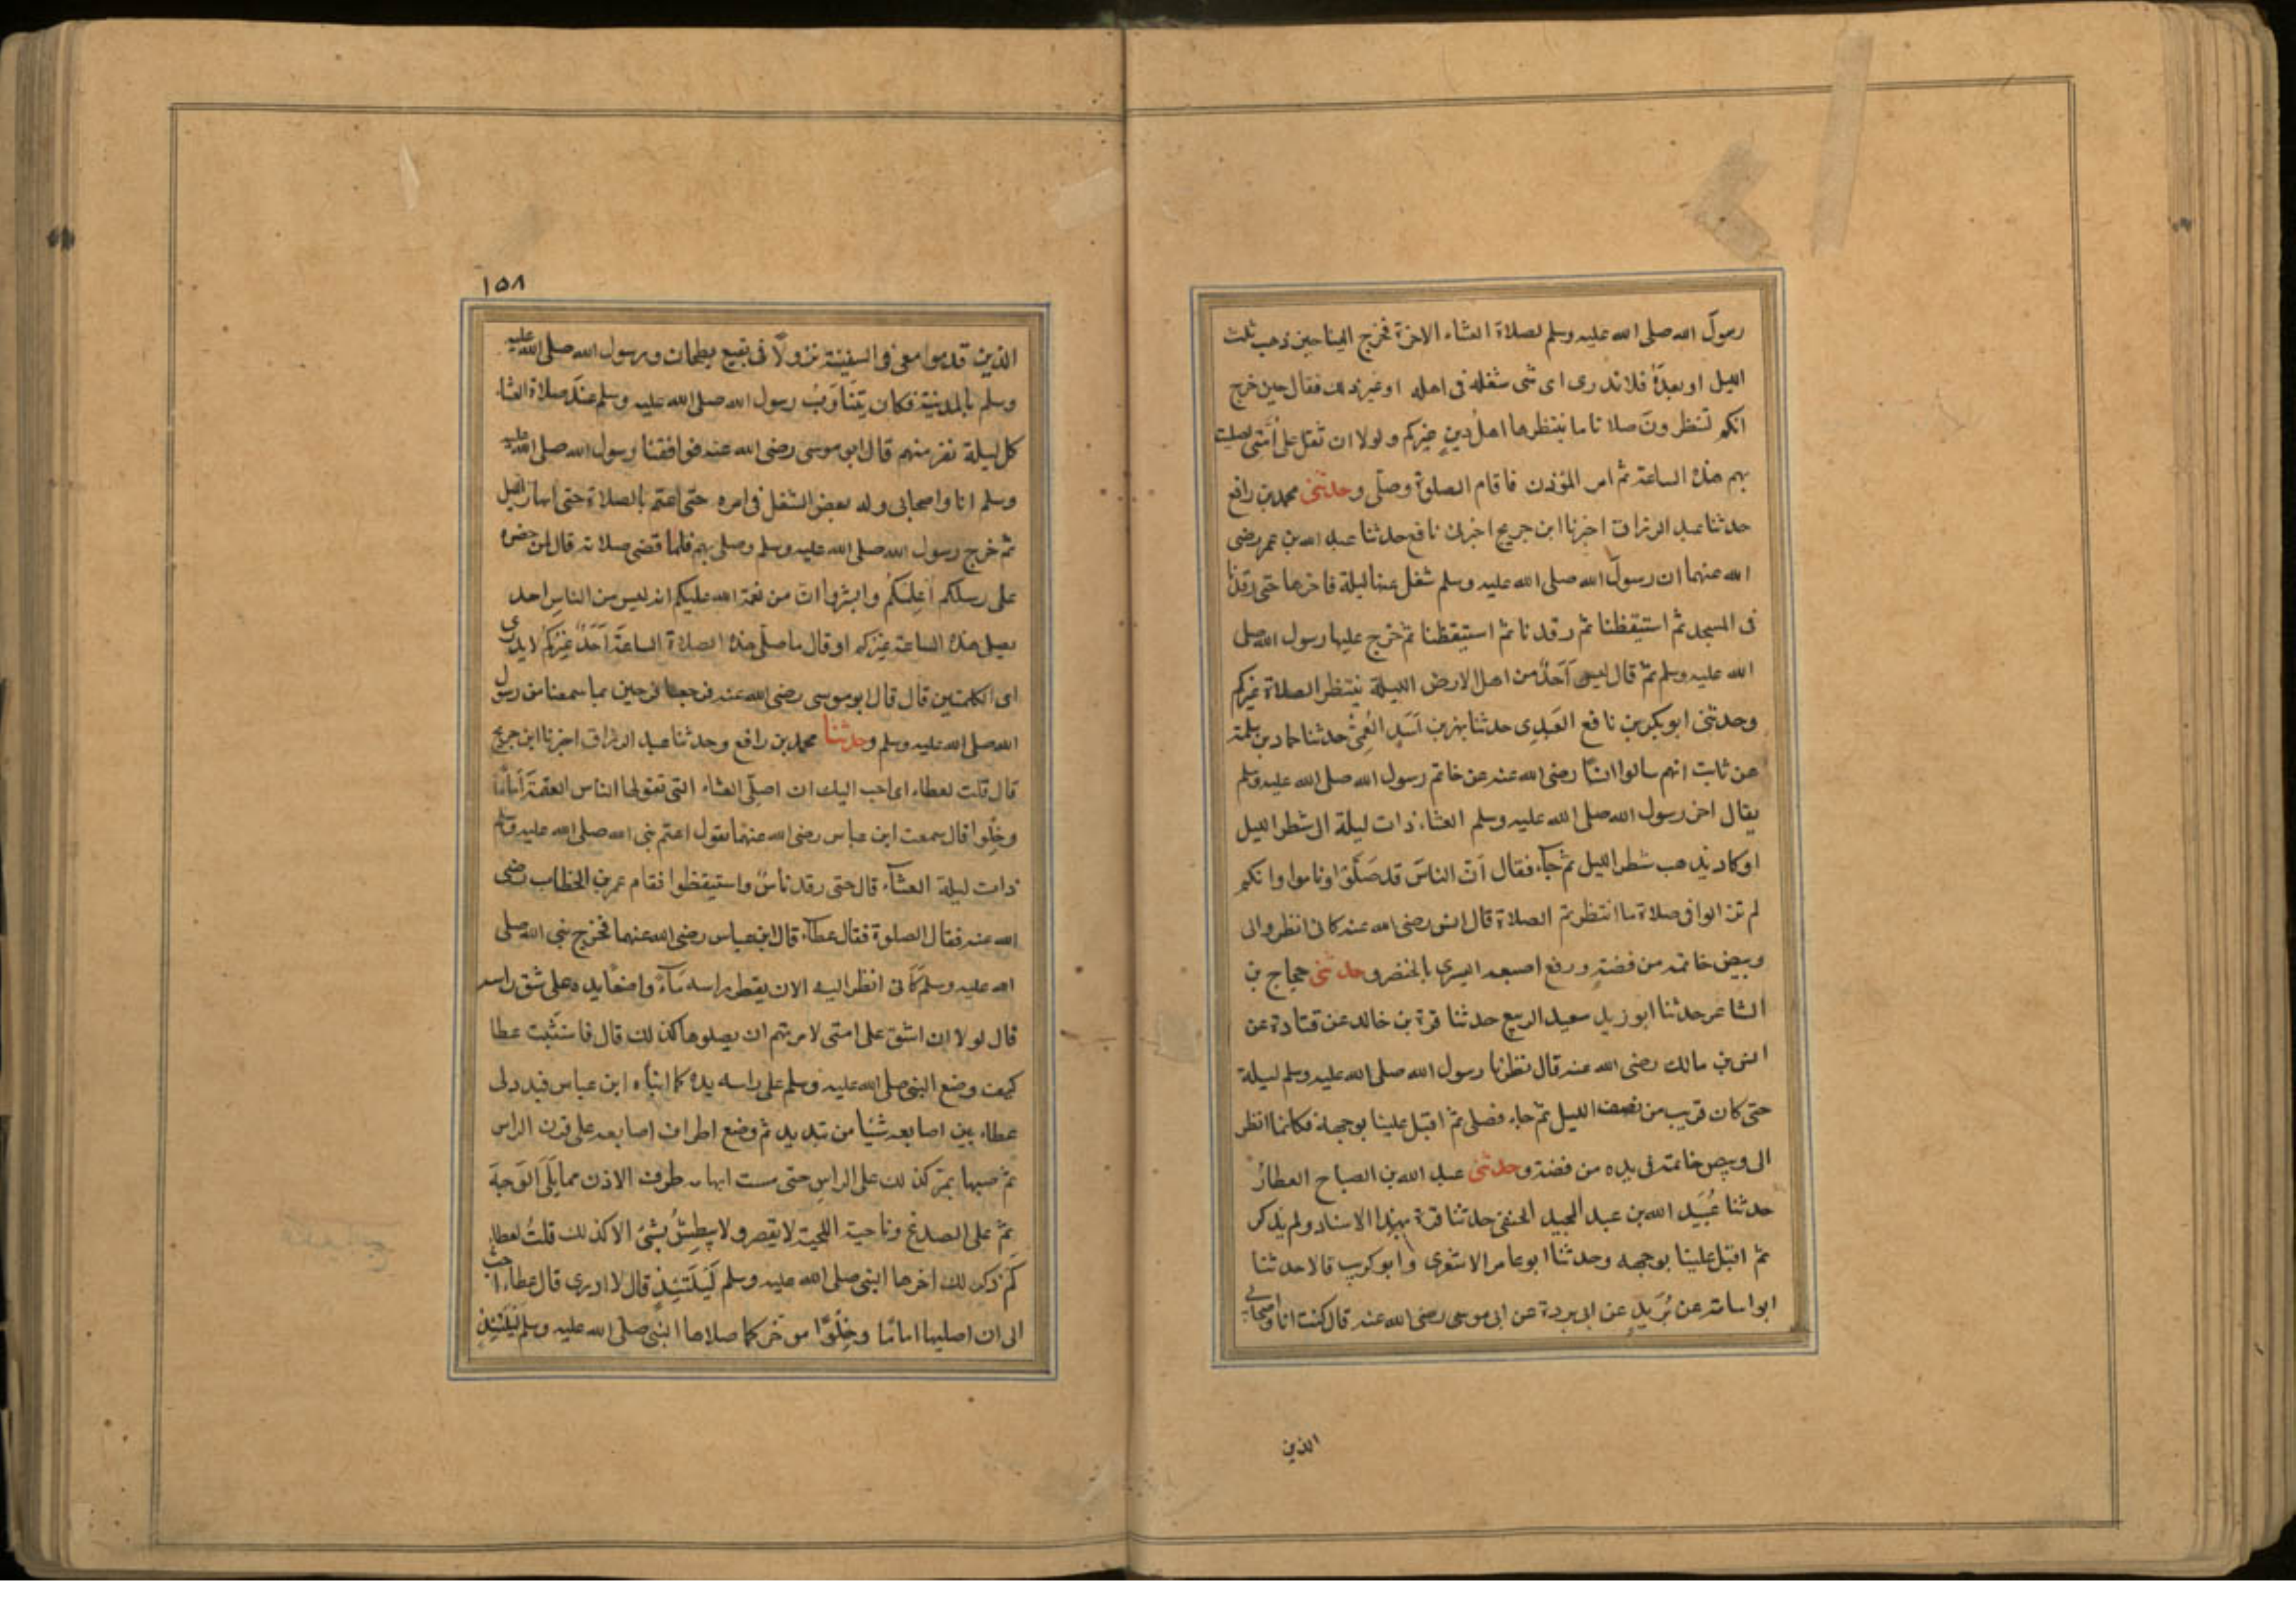 رسول الله صلى الله عليه وسلم لصلاة العشاء الاخرة فخرج الينا حين ذهب ثلث
الليل او بعدَهُ فلا ندرى اى شى شغله فى اهله او غير ذلك فقال حين خرج
انكم تنتظرونَ صلاة ما ينتظرها اهلُ دينٍ غيركم ولولا ان ثقل على اُمَّتى لصليت
بهم هذه الساعة ثم امر المؤذن فاقام الصلوة وصلّى وحدثنى محمد بن رافع
حدثنا عبد الرزاق اخبرنا ابن جريج اخبرنى نافع حدثنا عبد الله بن عمر رضى
الله عنهما ان رسول الله صلى الله عليه وسلم شغل عنها ليلة فاخرها حتى رقدنا
فى المسجد ثم استيقظنا ثم رقدنا ثم استيقظنا ثم خرج علينا رسول الله صلى
الله عليه وسلم ثم قال ليس اَحَدٌ من اهل الارض الليلة ينتظر الصلاة غيركم
وحدثنى ابو بكر بن نافع العَبدِى حدثنا بهز بن اَسَدٍ العَمِّىُّ حدثنا حماد بن سلمة
عن ثابت انهم سالوا انسًا رضى الله عنه عن خاتم رسول الله صلى الله عليه وسلم
فقال اخر رسول الله صلى الله عليه وسلم العشاء ذات ليلة الى شطر الليل
او كاد يذهب شطر الليل ثم جآء فقال اَنّ الناسَ قد صَلَّوا وناموا وانكم
لم تزالوا فى صلاة ما انتظرتم الصلاة قال انس رضى الله عنه كانى انظر الى
وبيص خاتمه من فضةٍ ورفع اصبعه اليسرى بالخنصر وحدثنى حجاج بن
الشاعر حدثنا ابو زيد سعيد الربيع حدثنا قرة بن خالد عن قتادة عن
انس بن مالك رضى الله عنه قال نظرنا رسول الله صلى الله عليه وسلم ليلة
حتى كان قريب من نصف الليل ثم جاء فصلى ثم اقبل علينا بوجهه فكانما انظر
الى وبيص خاتمه فى يده من فضة وحدثنى عبد الله بن الصباح العطارُ
حدثنا عُبَيد الله بن عبد المجيد الحنفى حدثنا قرة بهذا الاسناد ولم يذكر
ثم اقبل علينا بوجهه وحدثنا ابو عامر الاشعرى وابو كريب قالا حدثنا
ابو اسامة عن بُرَيدٍ عن ابى بردة عن ابى موسى رضى الله عنه قال كنت انا واصحابى
الذين
١٥٨
الذين قدموا معى فى السفينة نزولًا فى بقيع بطحان ورسول الله صلى الله عليه
وسلم بالمدينة فكان يَتَنَاوَبُ رسول الله صلى الله عليه وسلم عندَ صلاة العشاء
كل ليلة نفر منهم قال ابو موسى رضى الله عنه فوافقنا رسول الله صلى الله عليه
وسلم انا واصحابى وله بعض الشغل فى امره حتى اعتم بالصلاة حتى ابهار الليل
ثم خرج رسول الله صلى الله عليه وسلم وصلى بهم فلما قضى صلاته قال لمن حضره
على رسلكم اُعلِمُكُم وابشروا ان من نعمة الله عليكم انه ليس من الناس احد
يصلى هذه الساعة غيركم او قال ما صلّى هذه الصلاة الساعَةَ اَحَدٌ غَيرُكُم لا يدرى
اى الكلمتين قال قال ابو موسى رضى الله عنه فرجعنا فرحين بما سمعنا من رسول
الله صلى الله عليه وسلم وحدثنا محمد بن رافع وحدثنا عبد الرزاق اخبرنا ابن جريج
قال قلت لعطاء اى احب اليك ان اصلّى العشاء التى تقولها الناس العتمَةَ اِمَامًا
وخِلْوا قال سمعت ابن عباس رضى الله عنهما يقول اعتم نبى الله صلى الله عليه وسلم
ذات ليلة العشآء قال حتى رقد ناسٌ واستيقظوا فقام عمر بن الخطاب رضى
الله عنه فقال الصلوة فقال عطآء قال ابن عباس رضى الله عنهما فخرج نبى الله صلى
الله عليه وسلم كَاَنى انظر اليه الان يقطر راسه مَآءً واضعًا يده على شق راسه
قال لولا ان اشق على امتى لامرتهم ان يصلوها كذلك قال فاستثبت عطا
كيف وضع النبى صلى الله عليه وسلم على راسه يده كما انبأه ابن عباس فبدد لى
عطاء بين اصابعه شيًا من تبديد ثم وضع اطراف اصابعه على قرن الراس
ثم صبها يمر كذلك على الراس حتى مست ابهامه طرف الاذن مما يَلى الوَجهَ
ثم على الصدغ وناحية اللحية لا يقصر ولا يبطِشُ بِشَىْ الا كذلك قلتُ لعطاء
كَم ذكر لك اخرها النبى صلى الله عليه وسلم لَيلَتَئِذٍ قال لا ادرى قال عطاء احب
الى ان اصليها امامًا وخِلْوًا موخر كما صلاها النبى صلى الله عليه وسلم لَيلَتَئِذٍ